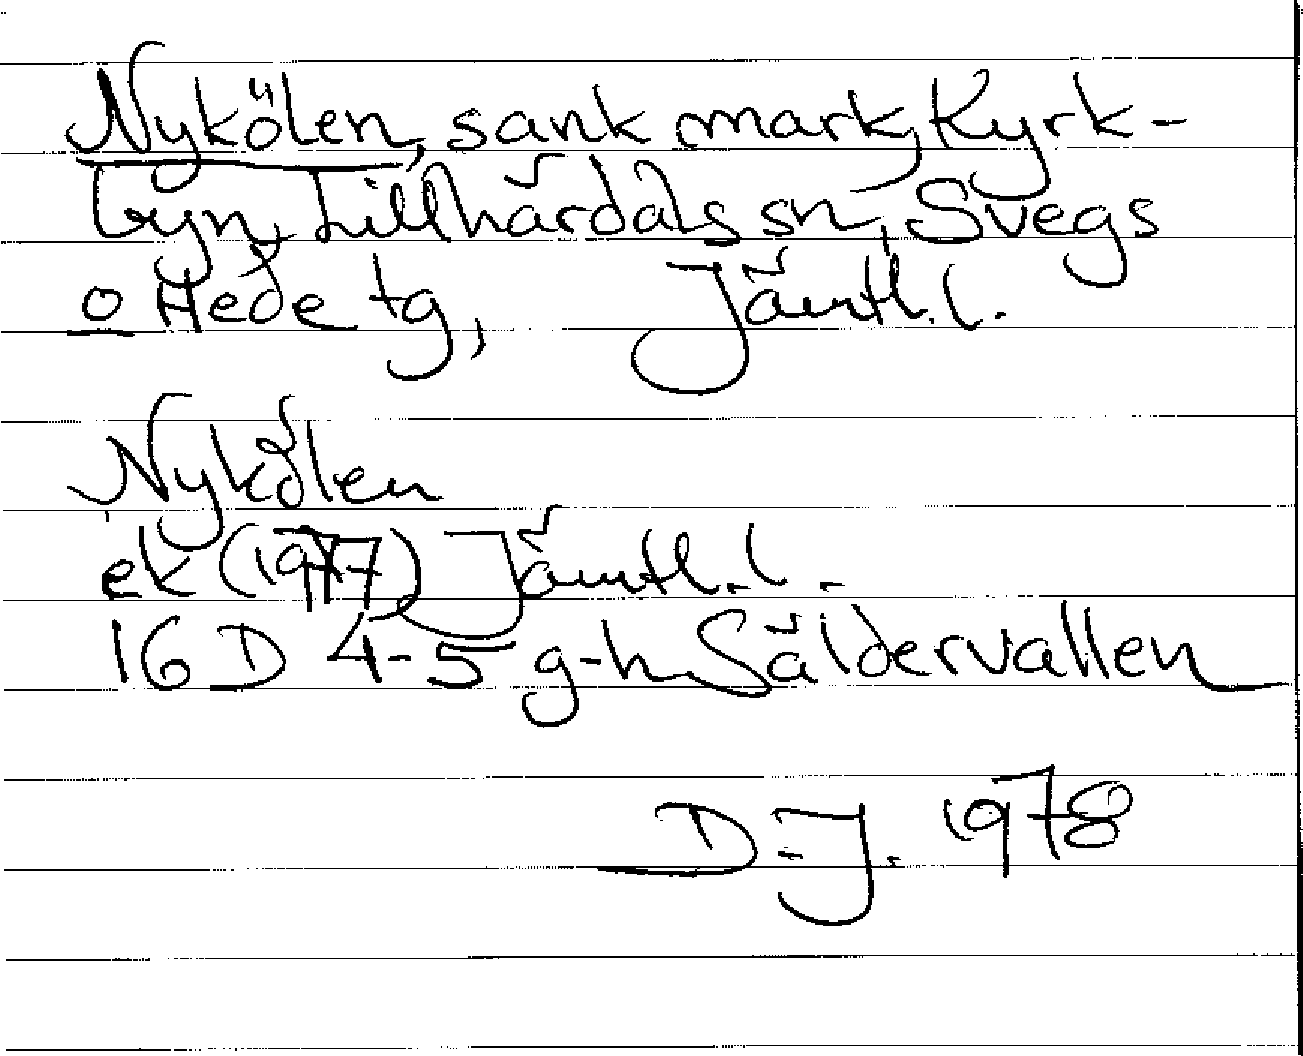 Nykölen, sank mark, Kyrk-
byn, Lillhärdals sn, Svegs
o Hede tg, Jämtl. l.
Nykölen
ek (1977) Jämtl. l.
16 D 4-5 g-h Säldervallen
D.J. 1978